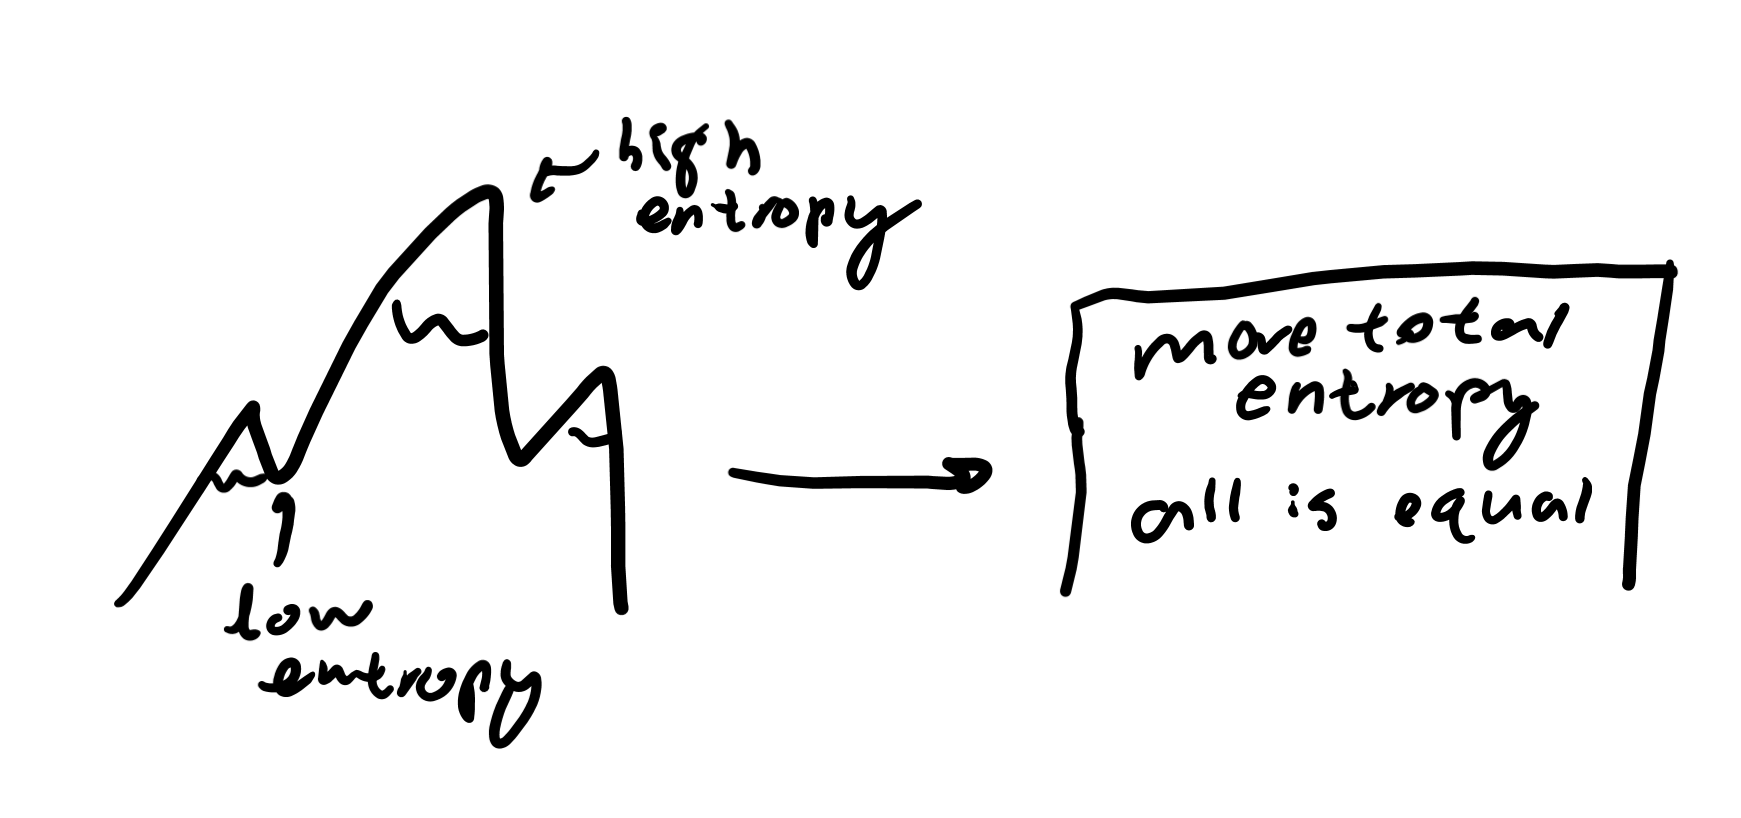 high
entropy
low
entropy
more total
entropy
all is equal